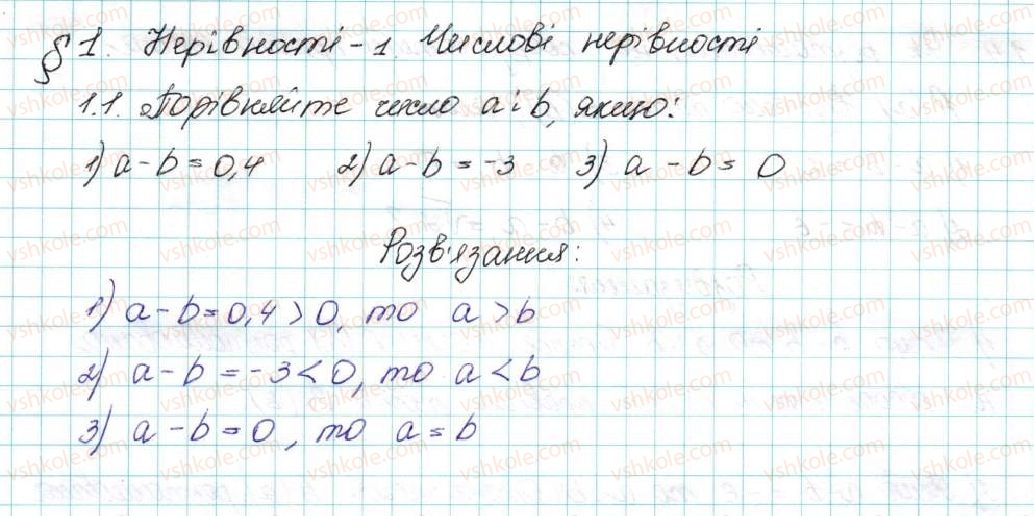 § 1. Нерівності - 1. Числові нерівності
1.1. Порівняйте число a і b, якщо:
1) a - b = 0,4 2) a - b = -3 3) a - b = 0
Розв'язання:
1) a - b = 0,4 > 0, то a > b
2) a - b = -3 < 0, то a < b
3) a - b = 0, то a = b